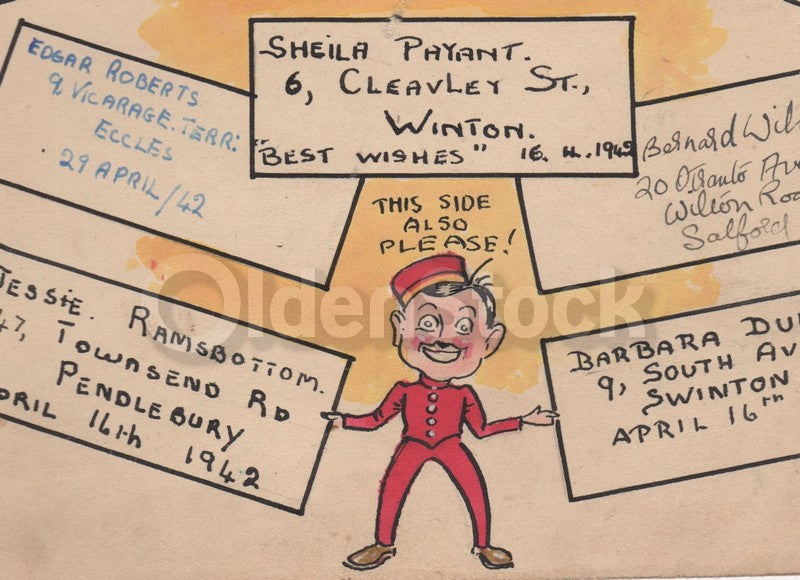 EDGAR ROBERTS
9, VICARAGE. TERR:
ECCLES
29 APRIL/42
SHEILA PAYANT.
6, CLEAVLEY ST.,
WINTON.
"BEST WISHES" 16. 4. 1942
Bernard
20 Otranto Av
Wilton Roa
Salford
THIS SIDE
ALSO
PLEASE!
JESSIE. RAMSBOTTOM.
47, TOWNSEND RD
PENDLEBURY
APRIL 16th 1942
BARBARA
9, SOUTH AV
SWINTON
APRIL 16TH
Oldernstock